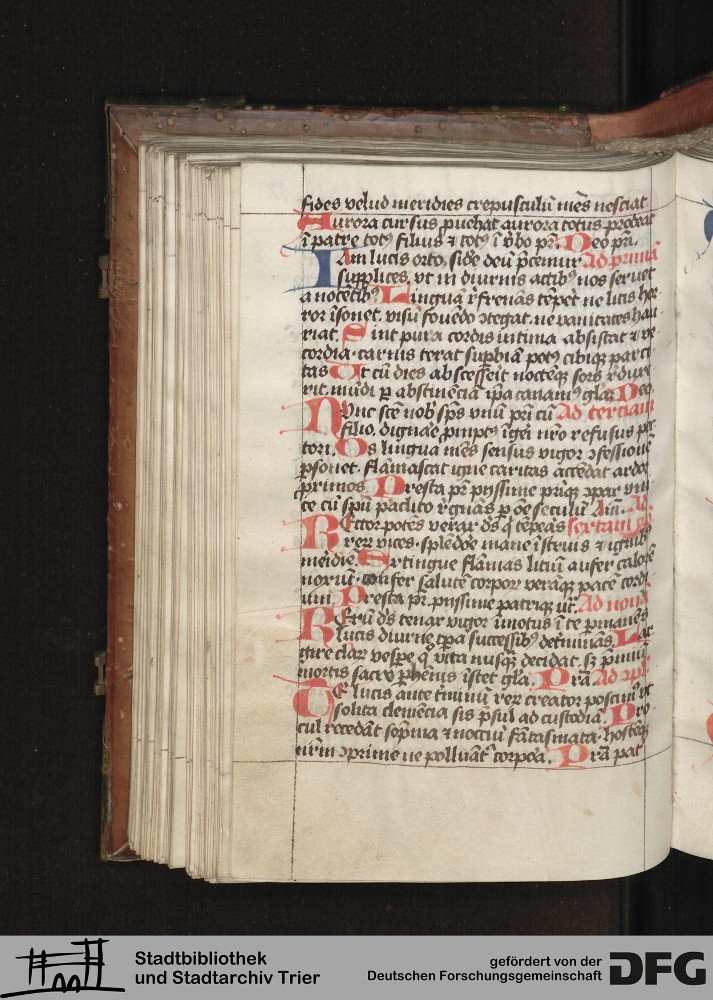 fides velud meridies crepusculū mēs nesciat
Aurora cursus ꝓuehat aurora totus prodeat
ī patre totꝰ filius ⁊ totꝰ ī v̓bo pr̄. Deo pr̄i.
Iam lucis orto side deū p̄cemur Ad primā
supplices, vt in diurnis actibꝰ nos seruet
a nocētibꝰ Linguā r̓frenās tēpet ne litis hor
ror īsonet. visū fouēdo ꝯtegat. ne vanitates hau
riat. Sint pura cordis intima absistat ⁊ ve
cordia. carnis terat supbiā potꝰ cibiqꝫ parci
tas Ut cū dies abscesserit noctēqꝫ sors r̓duxe
rit. mūdi p̲ abstinēciā ip̄a canamꝰ glaꝫ Deo
Nunc scē nob̓ sp̄s vnū pr̄i cū Ad terciam
filio. dignare ꝓmptꝰ īgeri nr̄o refusus pec
tori. Os lingua mēs sensus vigor ꝯfessionē
p̲sonet. flāmascat igne caritas accēdat ardor
ꝓximos. Presta pr̄ pijssime pr̄iqꝫ ꝯpar vni
ce cū spū paraclito r̓gnās p̲ oē seculū Am̄. Ad
Rector potēs verax ds̄ q̇ tēperas sextam
rerꝝ vices. splēdore mane īstruis ⁊ ignibꝰ
meridiē. Extingue flāmas litiū aufer calorē
noxiū. confer salutē corporꝝ verāqꝫ pacē cordi
um. Presta pr̄. pijssime patriqꝫ ut̄. Ad nonā
Rerū ds̄ tenax vigor īmotus ī te p̲manēs
lucis diurne tp̄a successibꝰ det̓minās. Lar
gire clarꝝ vesp̲e q̇ vita nusqꝫ decidat. sꝫ p̄miū
mortis sacre p̲hennis īstet gl̄a. Pr̄a Ad ꝯpl̓
Te lucis ante t̓minū rerꝝ creator poscimꝰ vt
solita clemēcia sis p̄sul ad custodiā. Pro
cul recedāt sopnia ⁊ noctiū fātasmata. hostēqꝫ
nr̄m ꝯprime ne polluāt̉ corpora. Pr̄a pat̉
Stadtbibliothek
und Stadtarchiv Trier
gefördert von der
Deutschen Forschungsgemeinschaft DFG